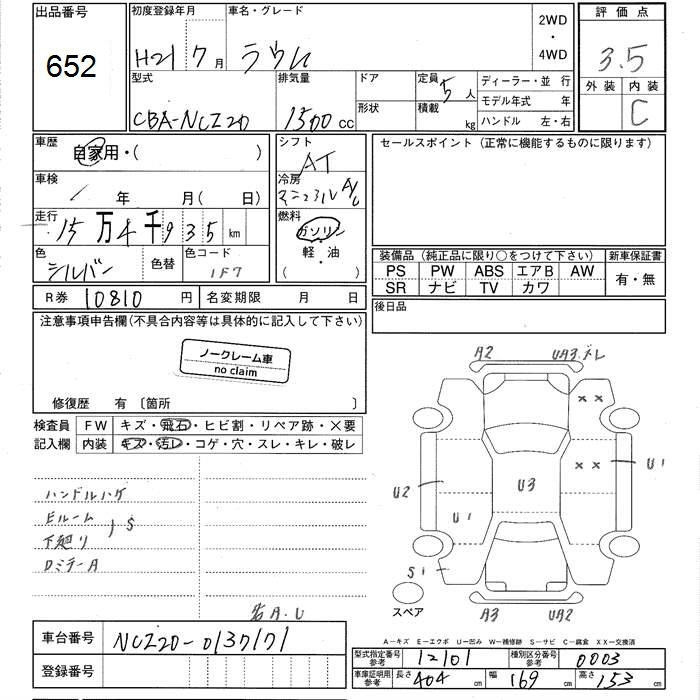 出品番号
652
初度登録年月
H21 7月
車名・グレード
ラウム
2WD
・
4WD
評価点
3.5
外装 内装
C
型式
CBA-NCZ20
排気量
1500 cc
ドア
形状
定員 5人
積載 kg
ディーラー・並 行
モデル年式 年
ハンドル 左・右
車歴
自家用・( )
車検
年 月( 日)
走行
15万4千935 km
色
シルバー
色替
色コード
1F7
シフト
AT
冷房
A/C
燃料
ガソリン
軽・油
( )
セールスポイント(正常に機能するものに限ります)
装備品(純正品に限り○をつけて下さい)
PS PW ABS エアB AW
SR ナビ TV カワ
新車保証書
有・無
後日品
R券 10810 円
名変期限 月 日
注意事項申告欄(不具合内容等は具体的に記入して下さい)
ノークレーム車
no claim
修復歴 有 〔箇所 〕
検査員
記入欄
FW キズ・飛石・ヒビ割・リペア跡・×要
内装 キズ・汚レ・コゲ・穴・スレ・キレ・破レ
ハンドルハゲ
Eルーム
下廻り
S
A2
UA3.
× ×
× ×
U1
U2
U3
U1
S1
スペア
A3
UA2
各A.U
A−キズ E−エクボ U−凹み W−補修跡 S−サビ C−腐食 XX−交換済
車台番号
NCZ20-0137171
登録番号
型式指定番号
参考
12101
種別区分番号
参考
0003
車庫証明用
参考
長さ 404 cm
幅 169 cm
高さ 153 cm